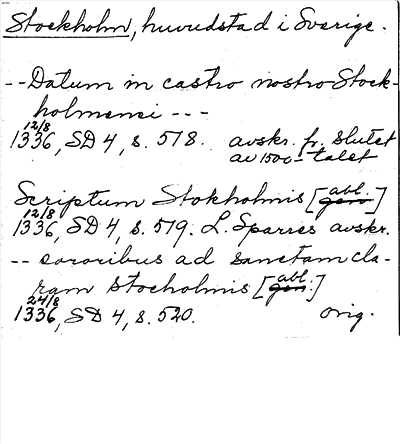 Stockholm, huvudstad i Sverige.
-- Datum in castro nostro Stock-
holmensi ---
12/8
1336, SD 4, s. 518. avskr. fr. slutet
av 1500-talet
Scriptum Stokholmis [gen. abl.]
12/8
1336, SD 4, s. 519. L. Sparres avskr.
-- sororibus ad sanctam cla-
ram Stocholmis [gen. abl.]
24/8
1336, SD 4, s. 520. orig.